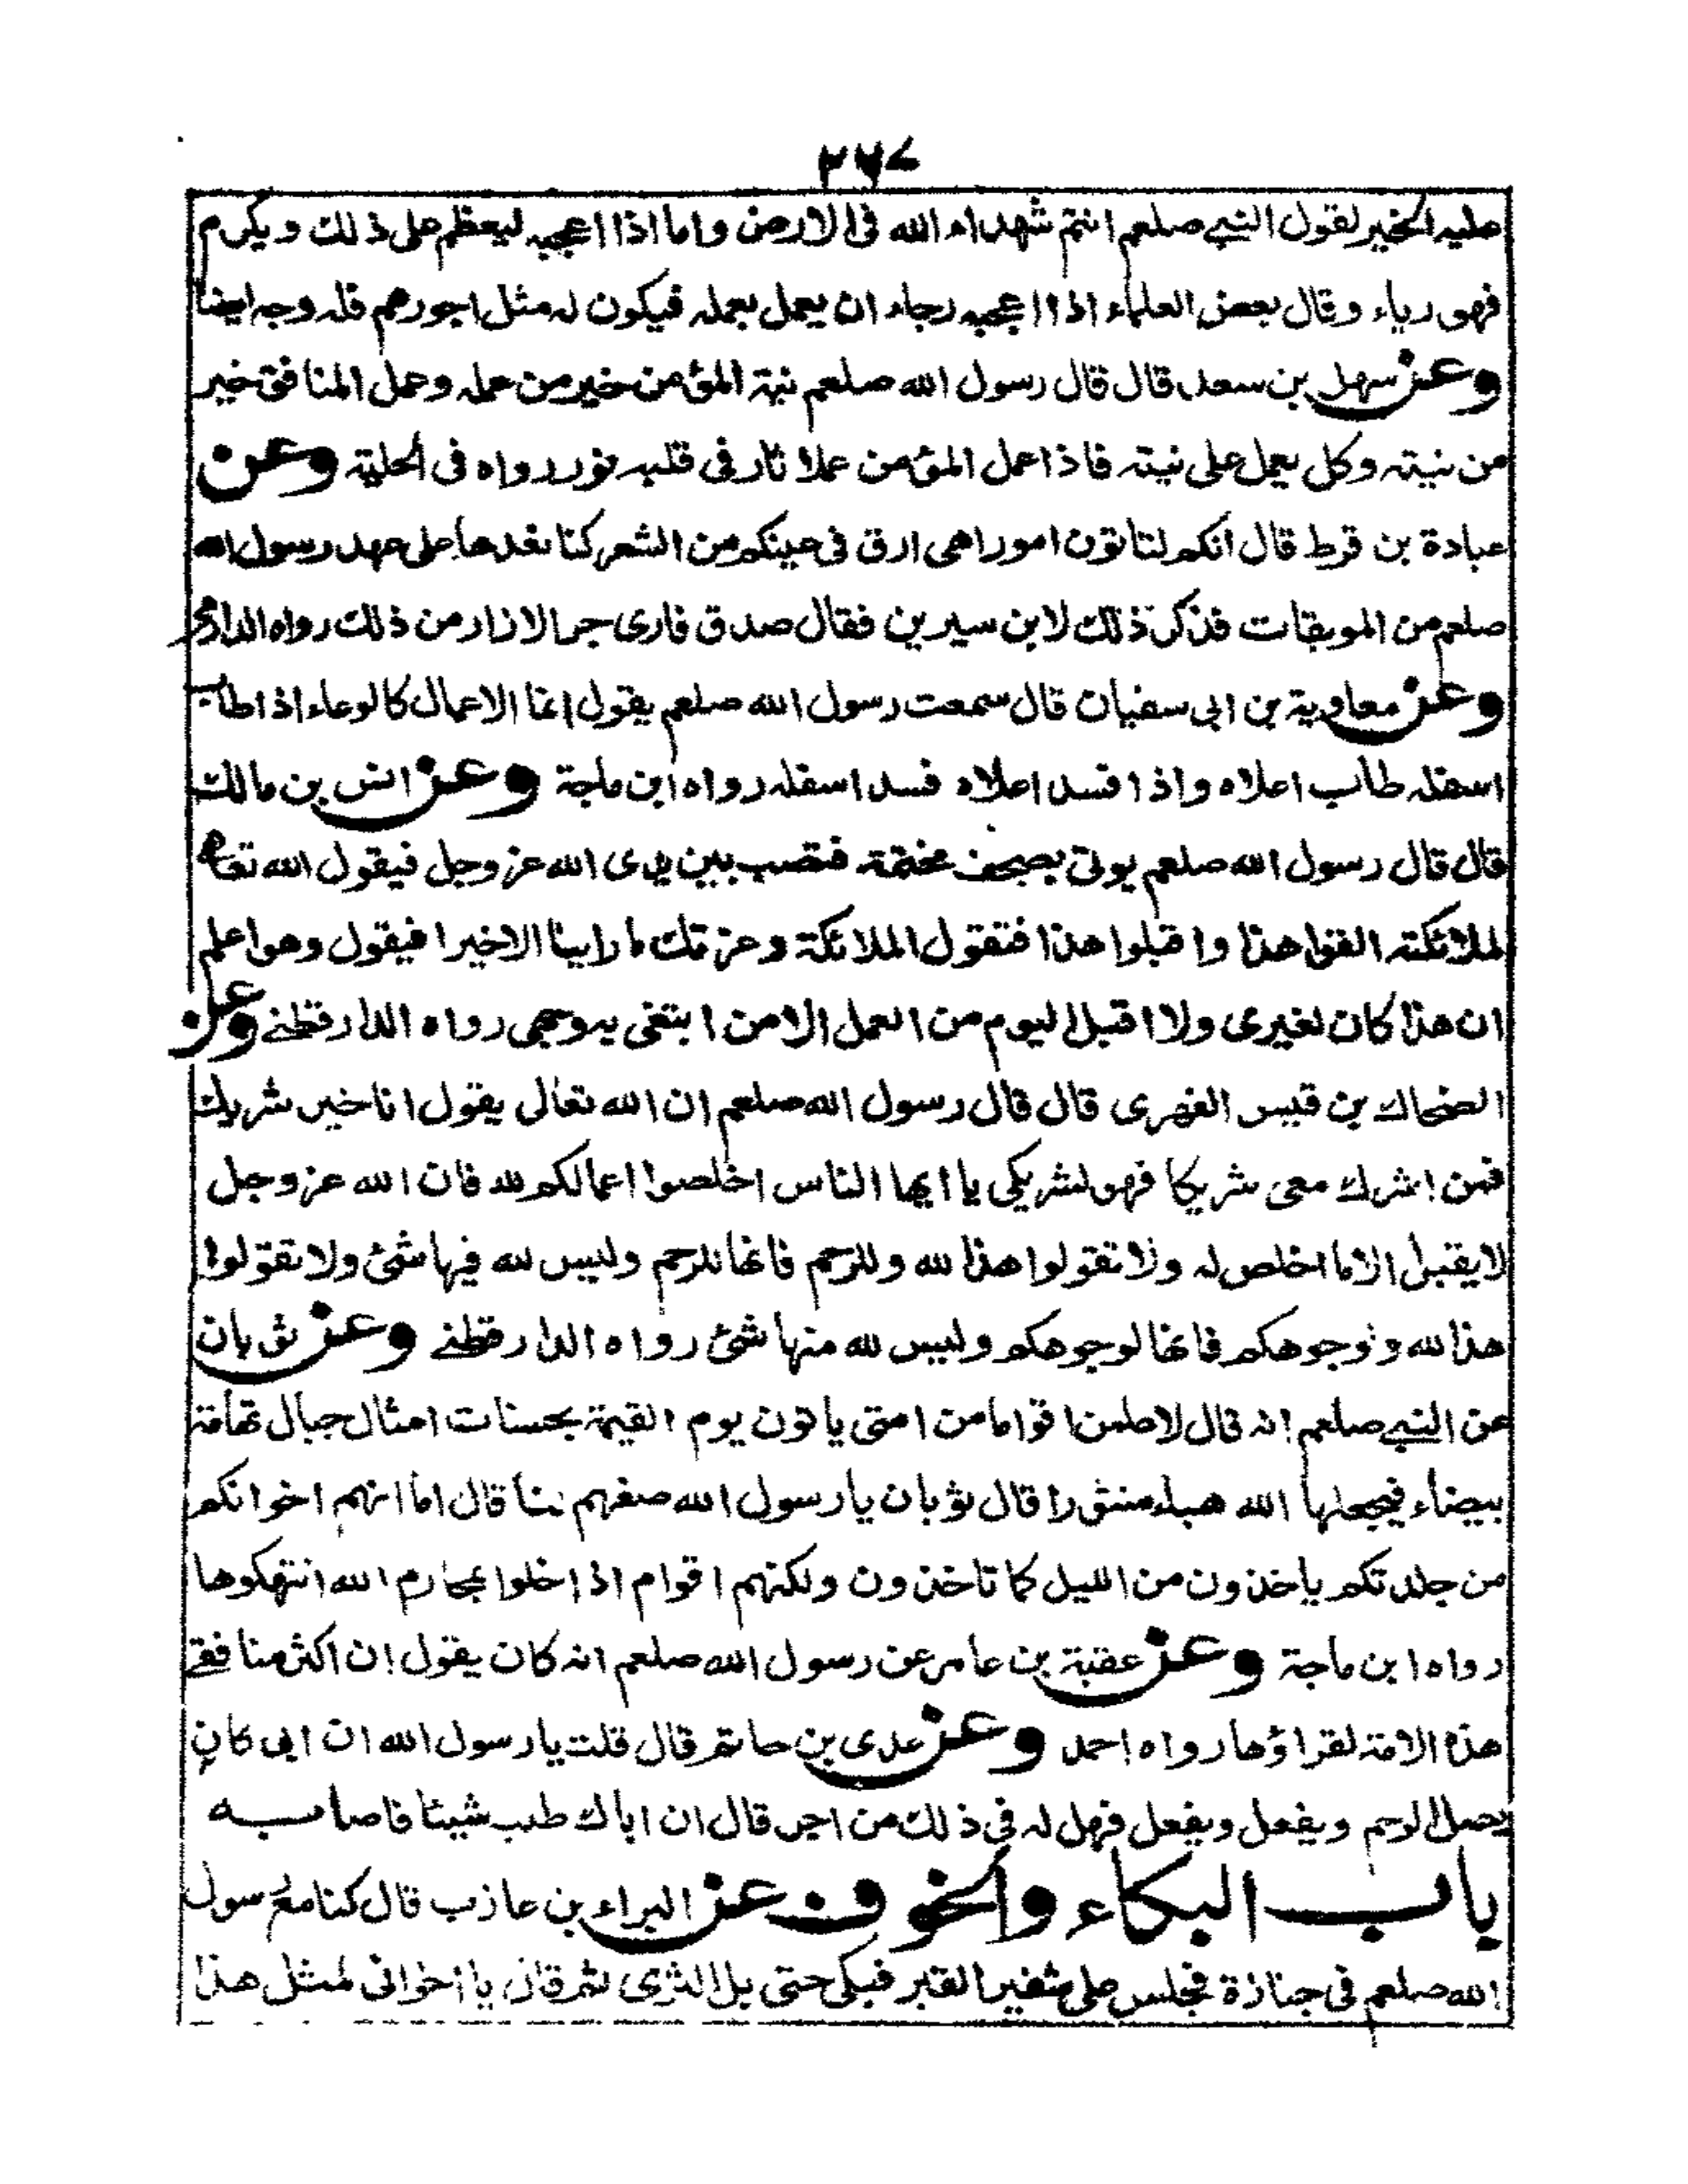 ٢٦٧
عليه الخير لقول النبي صلعم انتم شهداء الله فى الارض واما اذا اعجبه ليعظم على ذلك ويكرم
فهو رياء وقال بعض العلماء اذا اعجبه رجاء ان يعمل بعمله فيكون له مثل اجورهم فله وجه ايضا
وعن سهل بن سعد قال قال رسول الله صلعم نية المؤمن خير من عمله وعمل المنافق خير
من نيته وكل يعمل على نيته فاذا عمل المؤمن عملا ثار فى قلبه نور رواه فى الحلية وعن
عبادة بن قرط قال انكم لتاتون امورا هى ارق فى عينكم من الشعر كنا نعدها على عهد رسول الله
صلعم من الموبقات فذكر ذلك لابن سيرين فقال صدق فارى جر الازار من ذلك رواه الدارمى
وعن معاوية بن ابى سفيان قال سمعت رسول الله صلعم يقول انما الاعمال كالوعاء اذا طاب
اسفله طاب اعلاه واذا فسد اعلاه فسد اسفله رواه ابن ماجة وعن انس بن مالك
قال قال رسول الله صلعم يوتى بصحف مختمة فتصب بين يدى الله عز وجل فيقول الله تعالى
لملائكته القوا هذا واقبلوا هذا فتقول الملائكة وعزتك ما راينا الا خيرا فيقول وهو اعلم
ان هذا كان لغيرى ولا اقبل اليوم من العمل الا من ابتغى به وجهى رواه الدارقطنے وعن
الضحاك بن قيس الفهرى قال قال رسول الله صلعم ان الله تعالى يقول انا خير شريك
فمن اشرك معى شريكا فهو لشريكى يا ايها الناس اخلصوا اعمالكم لله فان الله عز وجل
لا يقبل الا ما اخلص له ولا تقولوا هذا لله وللرحم فانها للرحم وليس لله فيها شئ ولا تقولوا
هذا لله ولوجوهكم فانها لوجوهكم وليس لله منها شئ رواه الدارقطنے وعن ثوبان
عن النبے صلعم انه قال لاعلمن اقواما من امتى ياتون يوم القيمة بحسنات امثال جبال تهامة
بيضاء فيجعلها الله هباء منثورا قال ثوبان يا رسول الله صفهم لنا قال اما انهم اخوانكم
من جلدتكم ياخذون من الليل كما تاخذون ولكنهم اقوام اذا خلوا بمحارم الله انتهكوها
رواه ابن ماجة وعن عقبة بن عامر عن رسول الله صلعم انه كان يقول ان اكثر منافقے
هذه الامة لقراؤها رواه احمد وعن عدى بن حاتم قال قلت يا رسول الله ان ابى كان
يصل الرحم ويفعل ويفعل فهل له فى ذلك من اجر قال ان اباك طلب شيئا فاصابه
باب البكاء والخوف عن البراء بن عازب قال كنا مع رسول
الله صلعم فى جنازة فجلس على شفير القبر فبكى حتى بل الثرى ثم قال يا اخوانى لمثل هذا